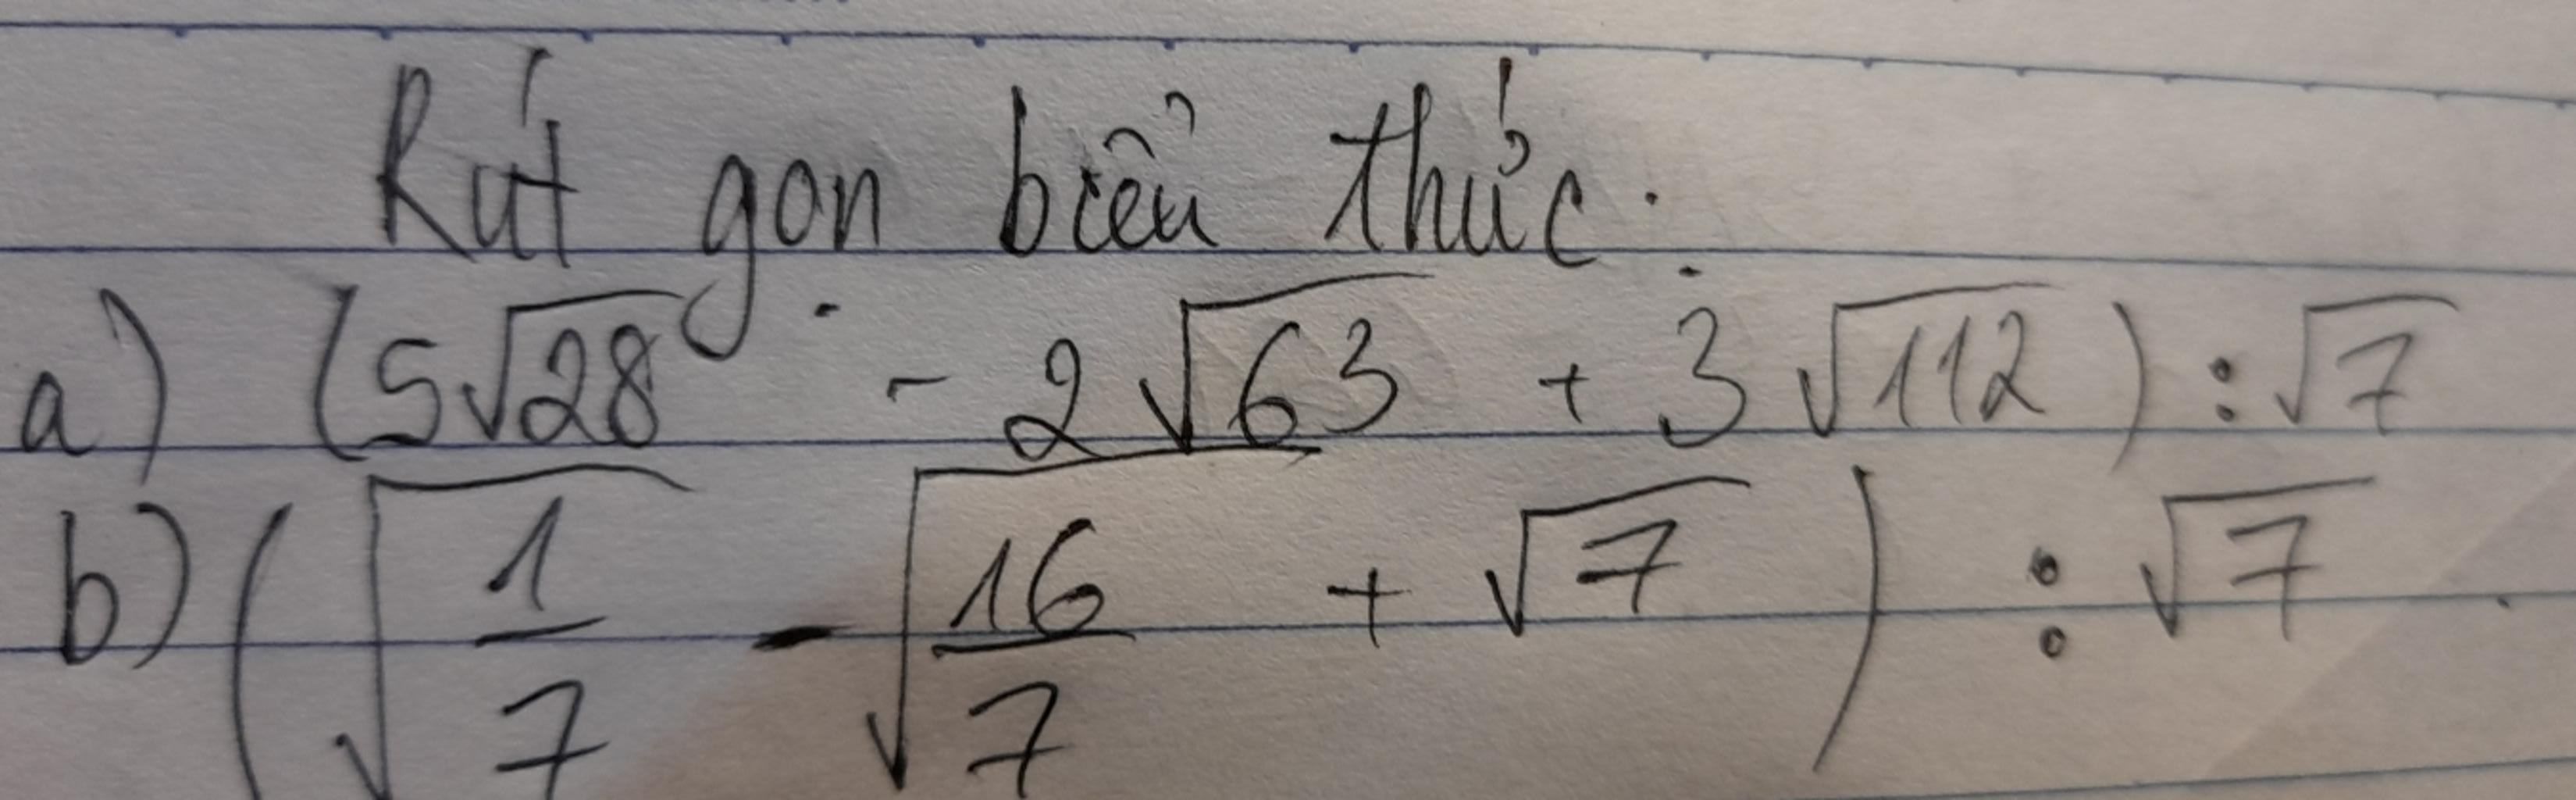 Rút gọn biểu thức:
a) (5√28 - 2√63 + 3√112) : √7
b) (√(1/7) - √(16/7) + √7) : √7